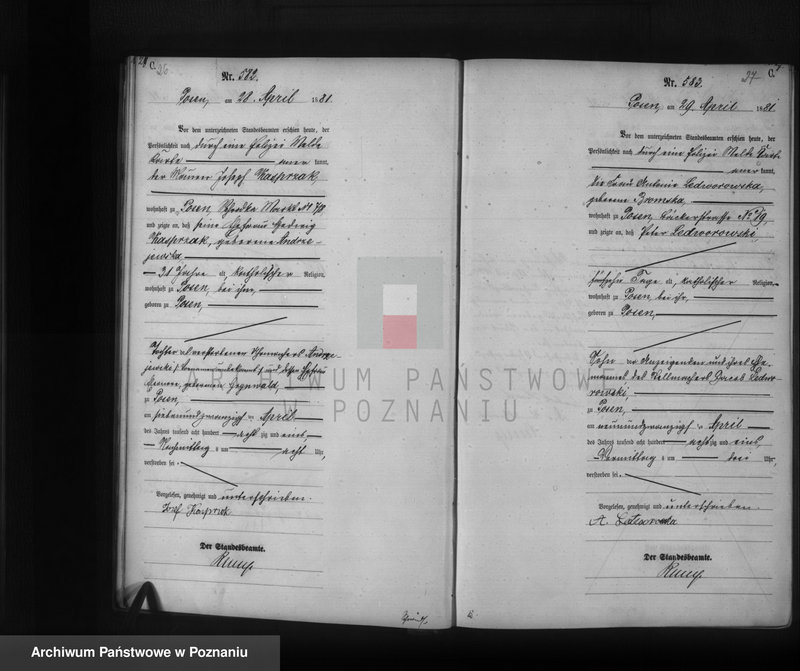 C.
26
Nr. 582.
Posen, am 28. April 1881.
Vor dem unterzeichneten Standesbeamten erschien heute, der
Persönlichkeit nach durch eine Polizei Melde
Karte anerkannt,
der Maurer Joseph Kasprzak,
wohnhaft zu Posen, Schrodka Markt N° 7/8
und zeigte an, daß seine Ehefrau Hedwig
Kasprzak, geborene Andrze-
jewska
31 Jahre alt, katholischer Religion,
wohnhaft zu Posen, bei ihm,
geboren zu Posen,
Tochter des verstorbenen Schumachers Andrze-
jewski und dessen Ehefrau
geborenen
zu Posen,
am siebenundzwanzigsten April
des Jahres tausend acht hundert achtzig und eins,
Nachmittag s um acht Uhr,
verstorben sei.
Vorgelesen, genehmigt und unterschrieben.
Josef Kasprzak
Der Standesbeamte.
37
C.
Nr. 583.
Posen, am 29. April 1881
Vor dem unterzeichneten Standesbeamten erschien heute, der
Persönlichkeit nach durch eine Polizei Melde Karte
anerkannt,
die Frau Antonie Ledworowska,
geborene
wohnhaft zu Posen, Bäckerstraße N° 19,
und zeigte an, daß Peter Ledworowski,
fünfzehn Tage alt, katholischer Religion,
wohnhaft zu Posen, bei ihr,
geboren zu Posen,
Sohn der Anzeigenden und ihres Ehe-
mannes des Stellmachers Ledwo-
rowski
zu Posen,
am neunundzwanzigsten April
des Jahres tausend acht hundert achtzig und eins,
Vormittag s um drei Uhr,
verstorben sei.
Vorgelesen, genehmigt und unterschrieben.
A.
Der Standesbeamte.
ARCHIWUM PAŃSTWOWE
W POZNANIU
Archiwum Państwowe w Poznaniu